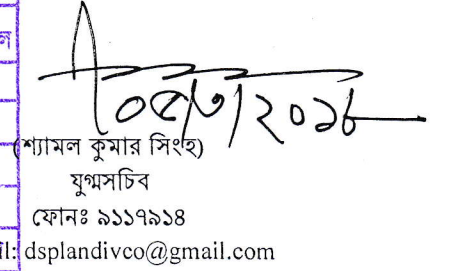 (শ্যামল কুমার সিংহ)
যুগ্মসচিব
ফোনঃ ৯১১৭৯১৪
il: dsplandivco@gmail.com